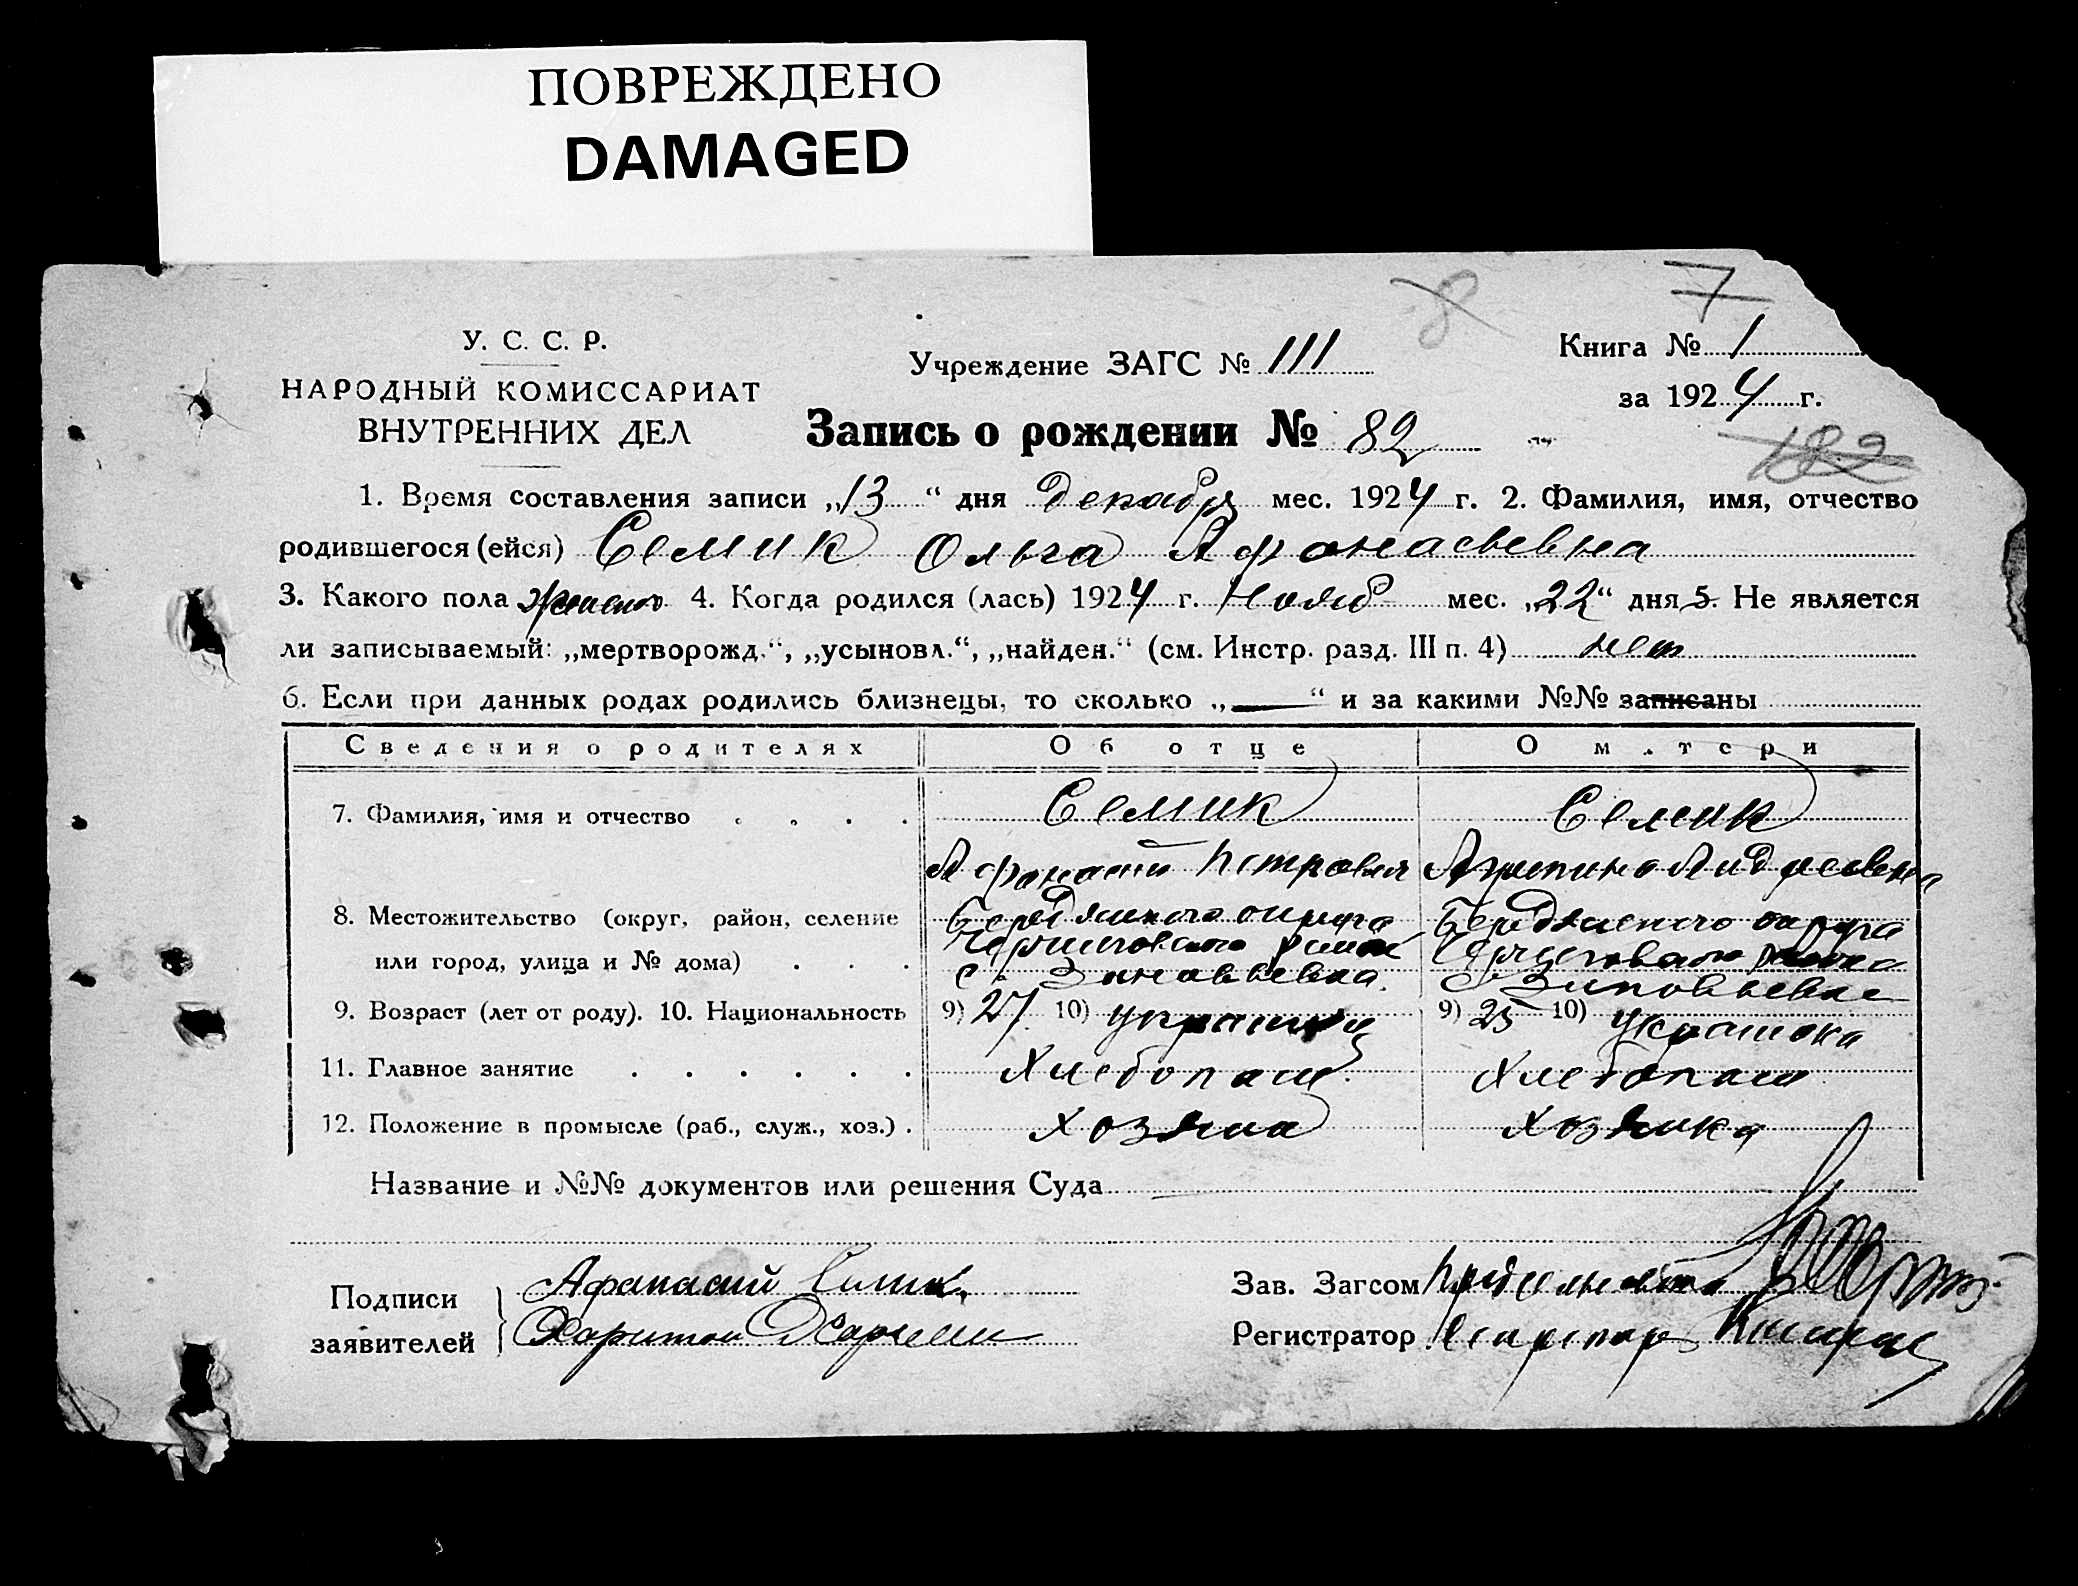 ПОВРЕЖДЕНО
DAMAGED
8 7
У. С. С. Р.
НАРОДНЫЙ КОМИССАРИАТ
ВНУТРЕННИХ ДЕЛ
Учреждение ЗАГС № 111
Книга № 1
за 1924 г.
Запись о рождении № 82
182
1. Время составления записи „13“ дня Декабря мес. 1924 г. 2. Фамилия, имя, отчество
родившегося (ейся) Семик Ольга Афонасьевна
3. Какого пола женско 4. Когда родился (лась) 1924 г. Нояб мес. „22“ дня 5. Не является
ли записываемый: „мертворожд.“, „усыновл.“, „найден.“ (см. Инстр. разд. III п. 4) нет
6. Если при данных родах родились близнецы, то сколько „—“ и за какими №№ записаны
Сведения о родителях Об отце О матери
7. Фамилия, имя и отчество . . . . Семик Семик
Афонасий Петрович Агрепина Андреевна
8. Местожительство (округ, район, селение Бердянского округа Бердянского округа
или город, улица и № дома) . . . Черниговского район Черниговского района
с. Зиновьевка. с. Зиновьевка
9. Возраст (лет от роду). 10. Национальность 9) 27 10) украинец 9) 25 10) украинка
11. Главное занятие . . . . . . Хлебопаш. Хлебопаш
12. Положение в промысле (раб., служ., хоз.) . хозяина хозяйка
Название и №№ документов или решения Суда
Подписи
заявителей
Афанасий Семик
Харитон
Зав. Загсом
Регистратор Секретар